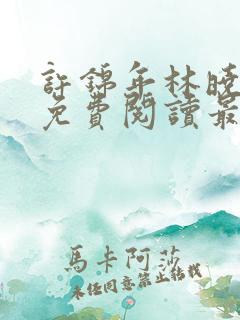 許錦年林曉
免費閱讀最
馬卡阿莎
未经同意禁止转载